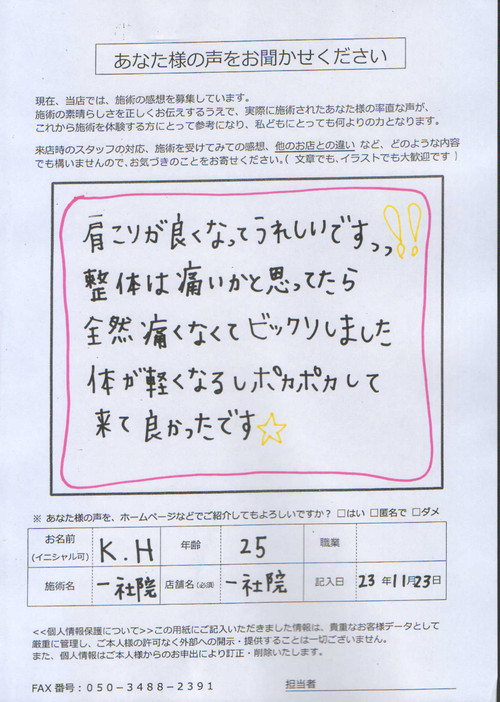 あなた様の声をお聞かせください
現在、当店では、施術の感想を募集しています。
施術の素晴らしさを正しくお伝えするうえで、実際に施術されたあなた様の率直な声が、
これから施術を体験する方にとって参考になり、私どもにとっても何よりの力となります。
来店時のスタッフの対応、施術を受けてみての感想、他のお店との違い など、どのような内容
でも構いませんので、お気づきのことをお寄せください。( 文章でも、イラストでも大歓迎です )
肩こりが良くなってうれしいですっっ!!
整体は痛いかと思ってたら
全然痛くなくてビックリしました
体が軽くなるしポカポカして
来て良かったです☆
※ あなた様の声を、ホームページなどでご紹介してもよろしいですか? □はい □匿名で □ダメ
お名前 (イニシャル可) K.H 年齢 25 職業
施術名 一社院 店舗名(必須) 一社院 記入日 23年11月23日
<<個人情報保護について>>この用紙にご記入いただきました情報は、貴重なお客様データとして
厳重に管理し、ご本人様の許可なく外部への開示・提供することは一切ございません。
また、個人情報はご本人様からのお申出により訂正・削除いたします。
FAX 番号:050-3488-2391 担当者